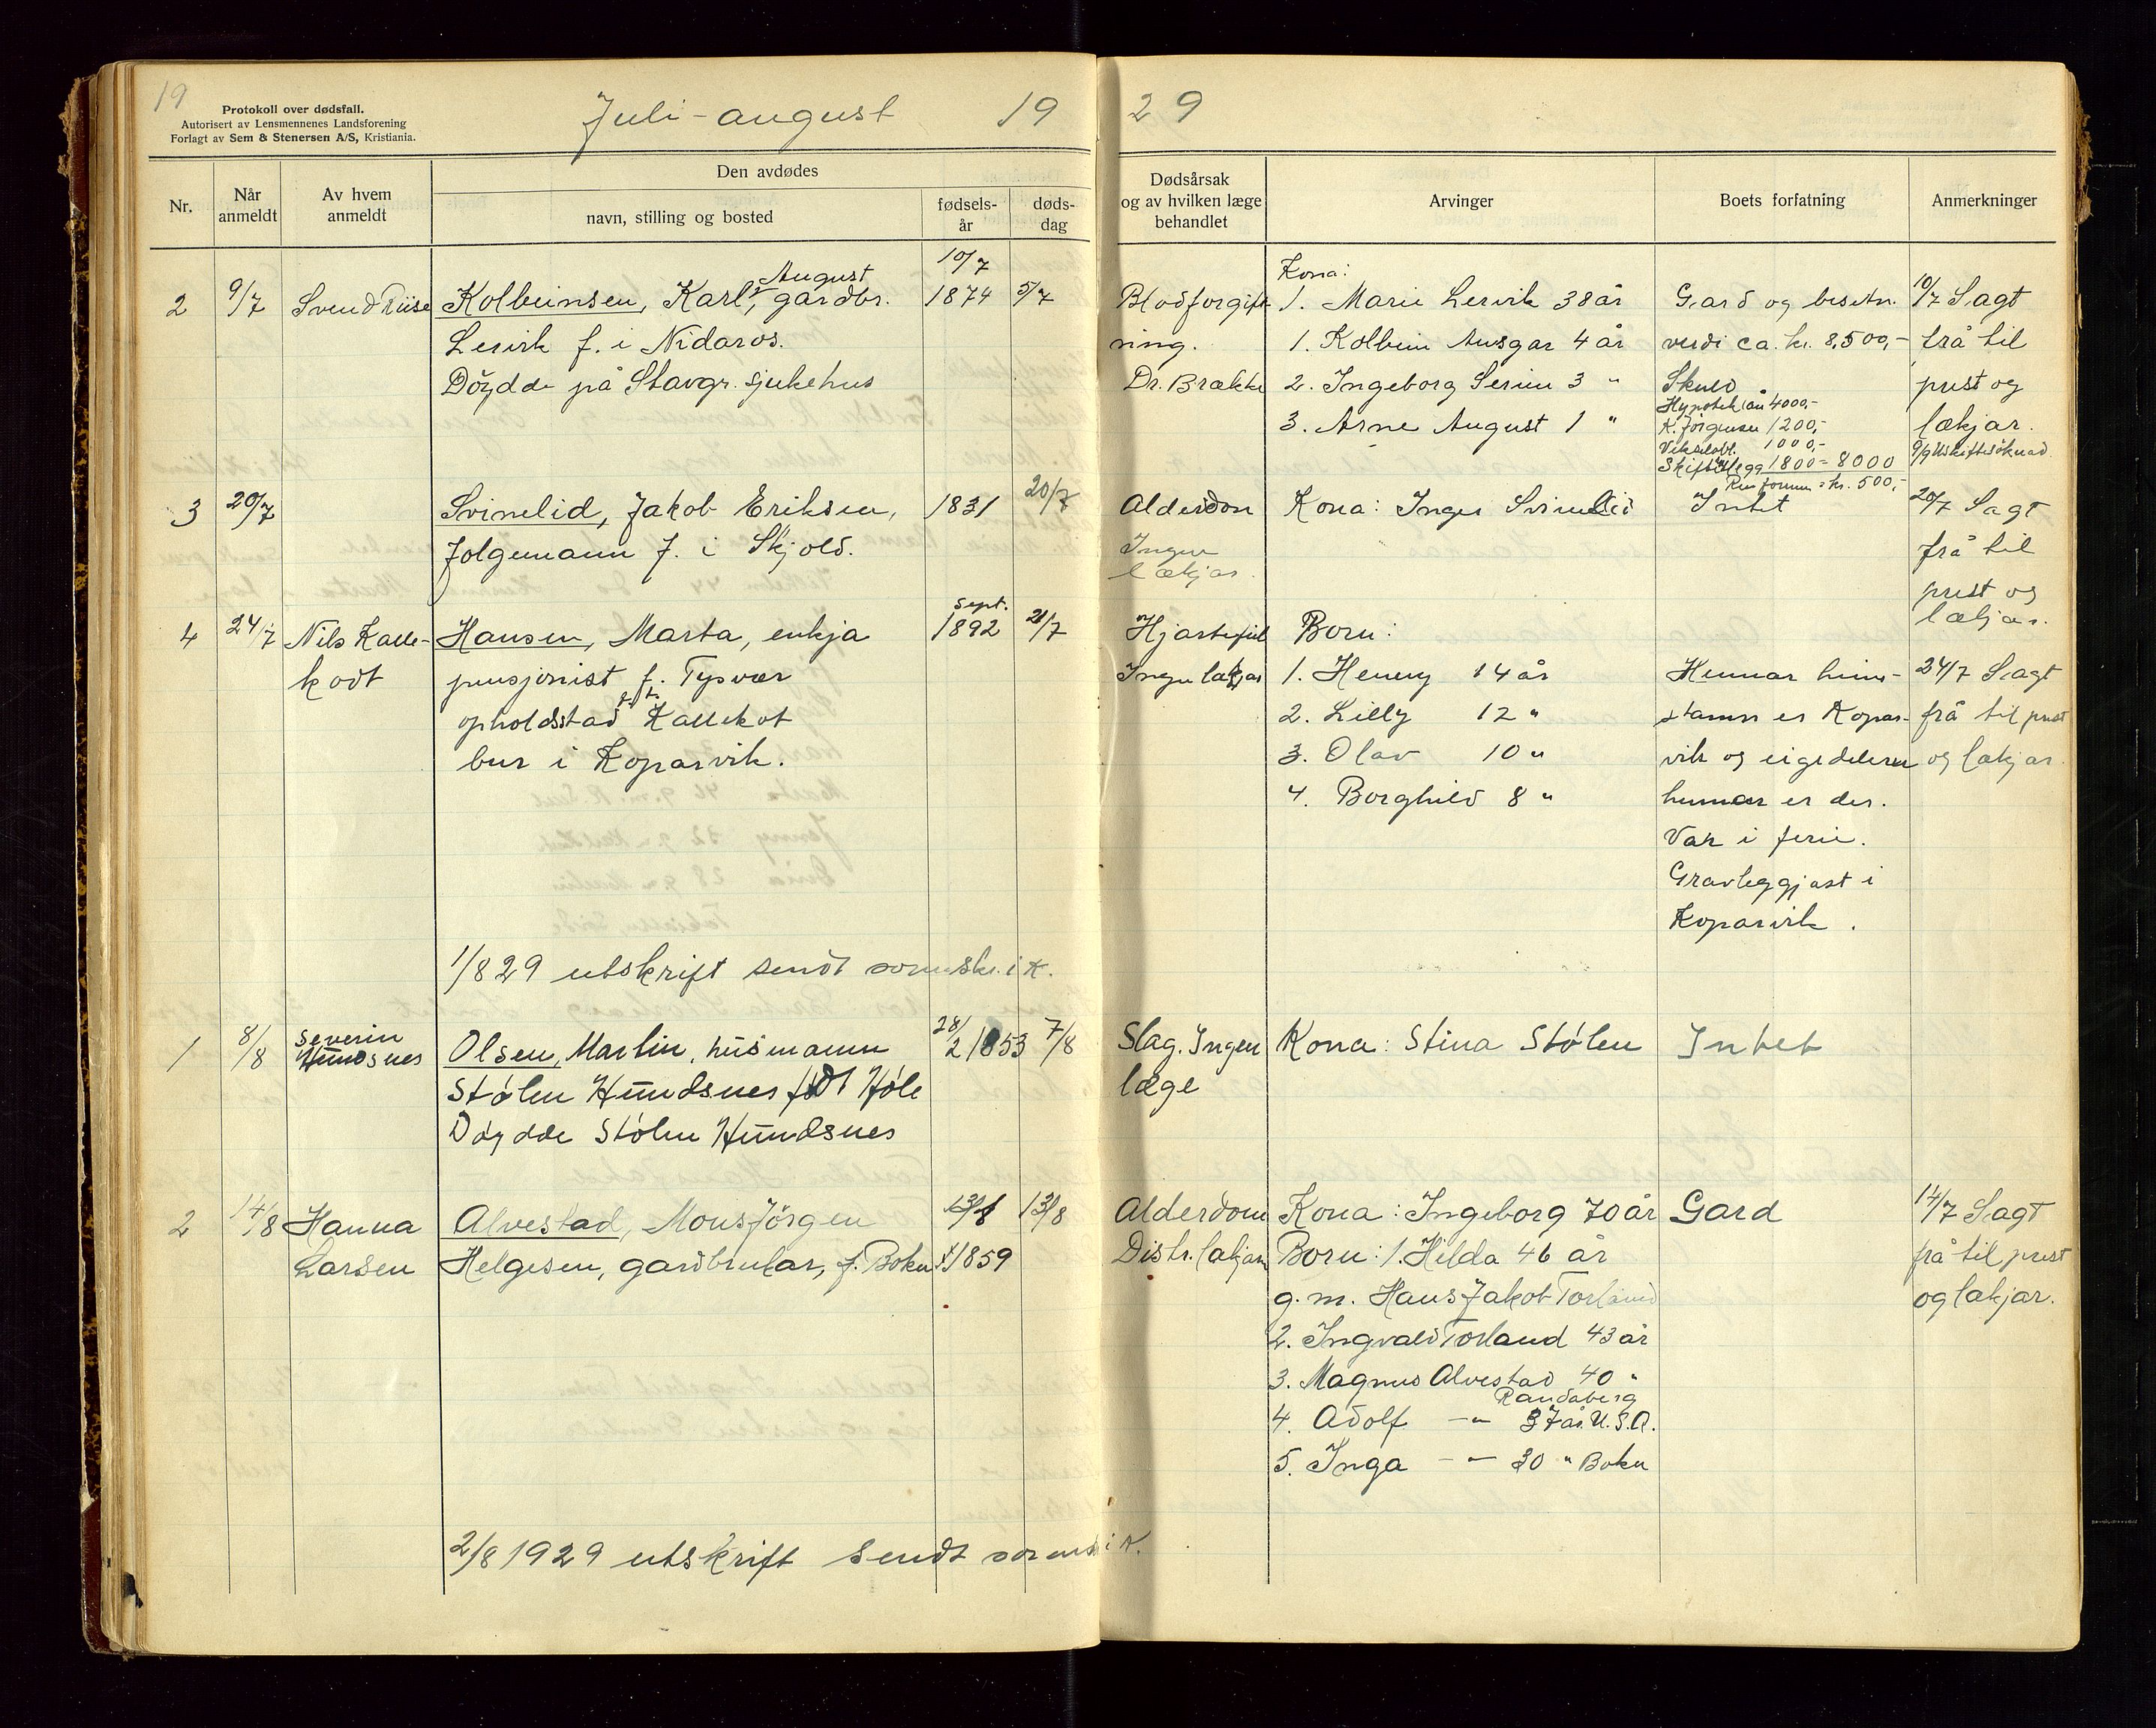 19
Protokoll over dødsfall.
Autorisert av Lensmennenes Landsforening
Forlagt av Sem & Stenersen A/S, Kristiania.
Juli - august 19 29
Nr.
Når anmeldt
Av hvem anmeldt
Den avdødes
navn, stilling og bosted
fødsels-år
døds-dag
Dødsårsak og av hvilken læge behandlet
Arvinger
Boets forfatning
Anmerkninger
2 9/7 Svend Riise Kolbeinsen, Karl August, gardbr. 10/7 1874 5/7
Lervik f. i Nidaros.
Döydde på Stavgr. sjukehus
Blodforgift-
ning.
Dr. Brække
Kona:
1. Marie Lervik 38 år
1. Kolbein Ansgar 4 år
2. Ingeborg Serine 3 "
3. Arne August 1 "
Gard og besetn.
verdi ca. kr. 8,500,-
Skuld
Hypoteklån 4000,-
K. Jörgensen 1200,-
Vekselobl. 1000,-
Skifteutlegg 1800 = 8000
Ren formue = kr. 500,-
10/7 Sagt
frå til
prest og
lækjar.
9/9 Utskiftesöknad.
3 20/7 Svinelid, Jakob Eriksen, 1831 20/7
Folgemann f. i Skjold.
Alderdom
Ingen
lækjar.
Kona: Inger Svinelid
Intet
20/7 Sagt
frå til
prest og
lækjar.
4 24/7 Nils Kalle-
kodt
Hansen, Marta, enkja sept. 1892 21/7
pensjonist f. Tysvær
opholdsstad Kallekot
bur i Koparvik.
Hjartefeil
Ingen lækjar
Born:
1. Henny 14 år
2. Lilly 12 "
3. Olav 10 "
4. Borghild 8 "
Hennar heim-
stamn er Kopar-
vik og eigedelerne
hennar er der.
Var i ferie.
Gravleggjast i
Koparvik.
24/7 Sagt
frå til prest
og lækjar.
1/8 29 utskrift sendt sorenskr. i K.
1 8/8 Severin
Hundsnes
Olsen, Martin, husmann 28/2 1853 7/8
Stølen Hundsnes født Høle
Døydde Stølen Hundsnes
Slag. Ingen
læge
Kona: Stina Stølen
Intet
2 14/8 Hanna
Larsen
Alvestad, Mons Jörgen 13/8 13/8
Helgesen, gardbrukar, f. Bokn 1859
Alderdom
Distr. lækjaren
Kona: Ingeborg 70 år
Born: 1. Hilda 46 år
g. m. Hans Jakob Torland
2. Ingvald Torland 43 år
3. Magnus Alvestad 40 "
Randaberg
4. Adolf - " - 37 år. U.S.A.
5. Inga - " - 30 " Bokn
Gard
14/7 Sagt
frå til prest
og lækjar.
2/8 1929 utskrift sendt sorenskr. i K.